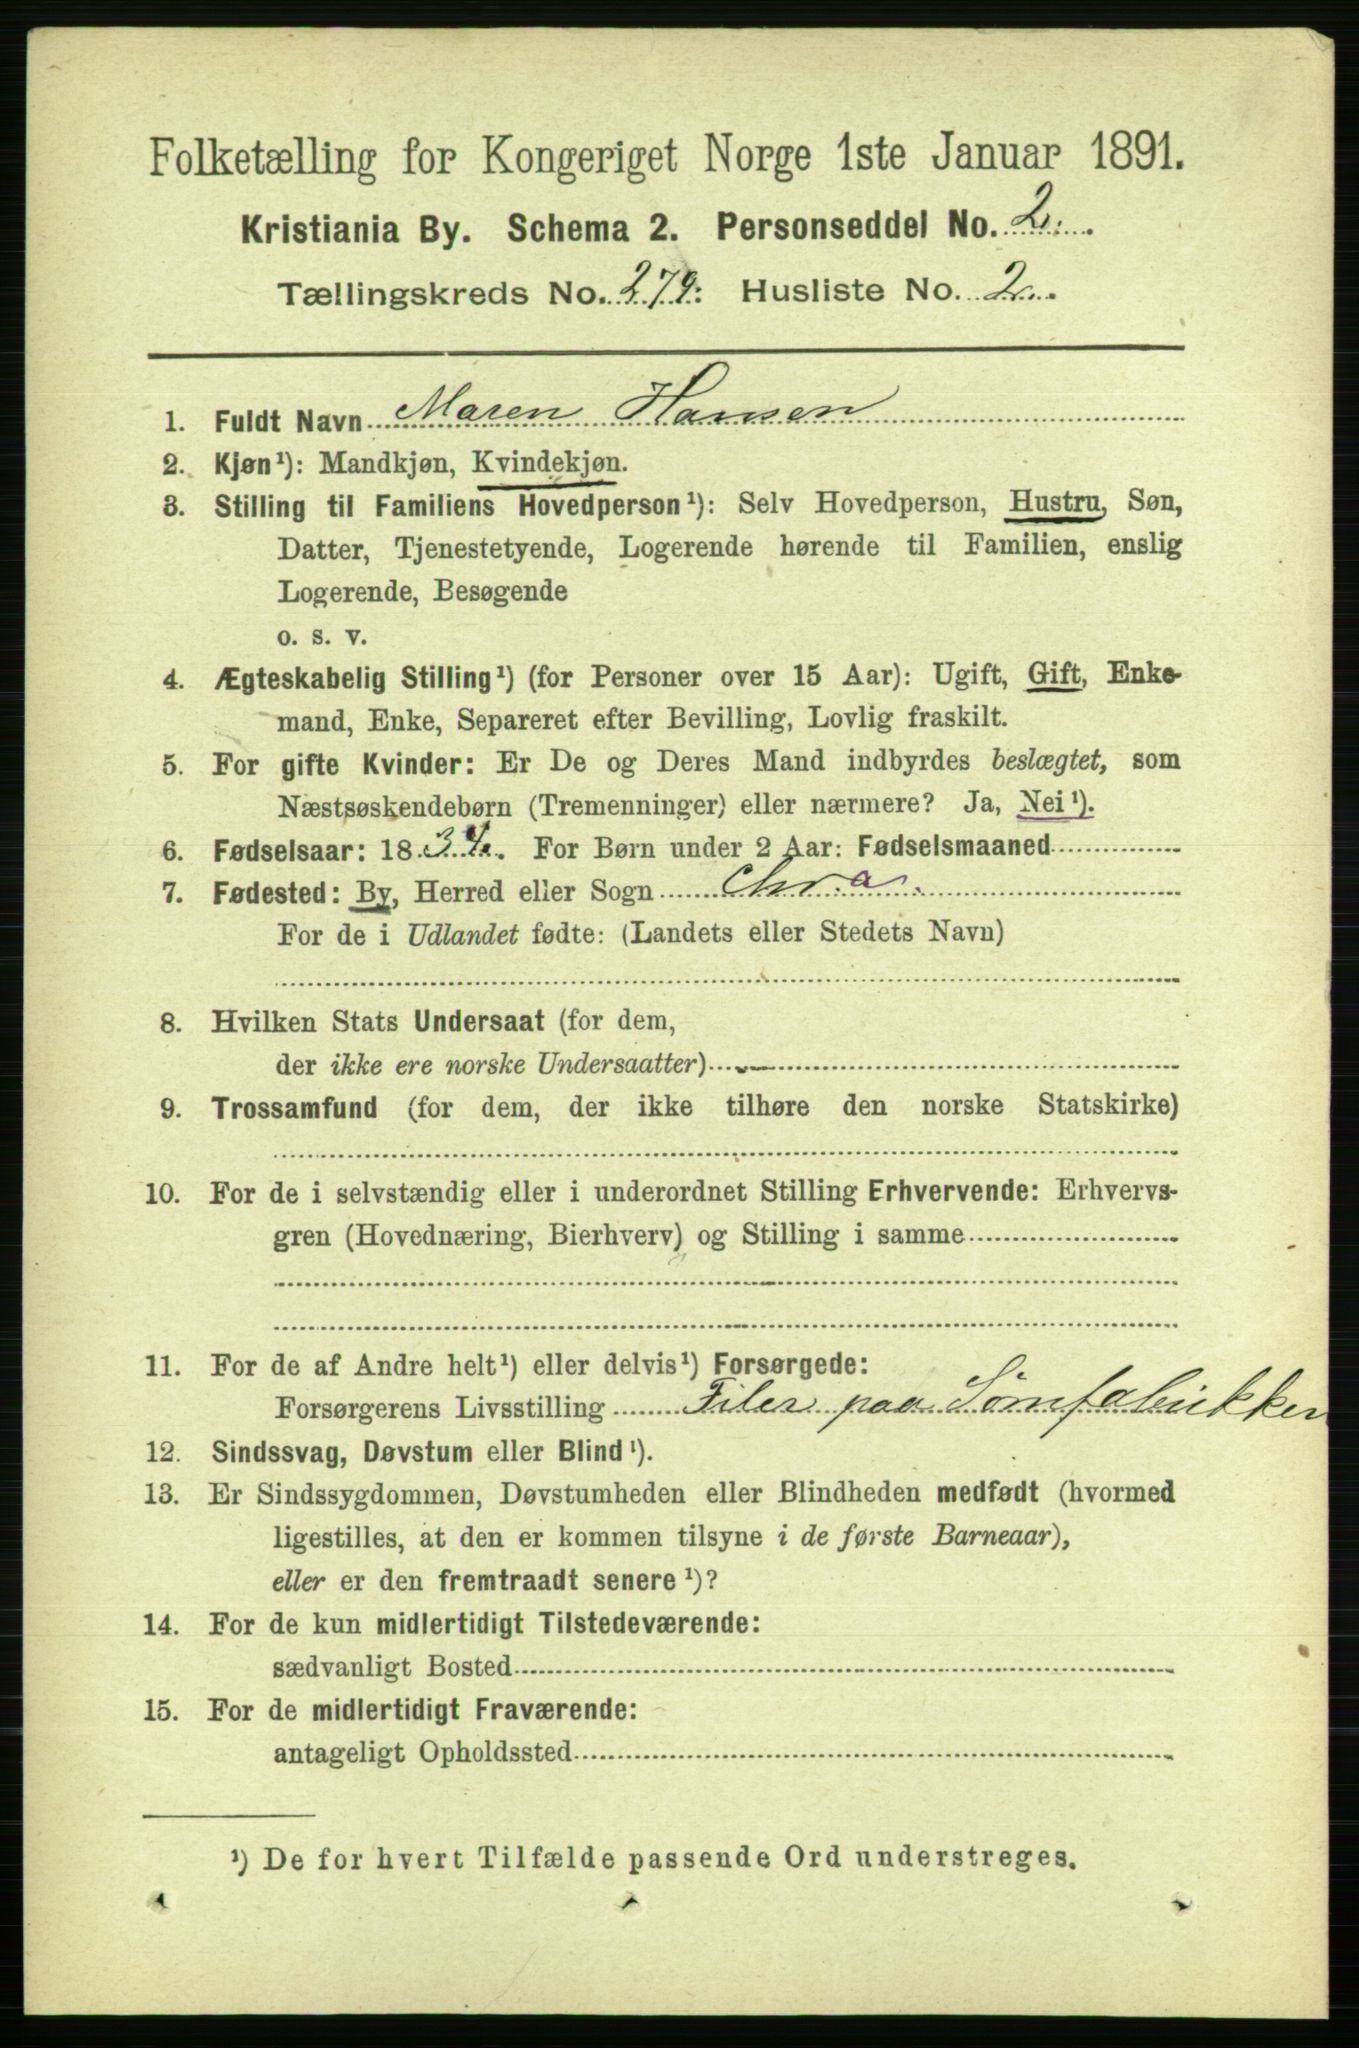 Folketælling for Kongeriget Norge 1ste Januar 1891.
Kristiania By. Schema 2. Personseddel No. 2.
Tællingskreds No. 279. Husliste No. 2.
1. Fuldt Navn Maren Hansen
2. Kjøn¹): Mandkjøn, Kvindekjøn.
3. Stilling til Familiens Hovedperson¹): Selv Hovedperson, Hustru, Søn,
Datter, Tjenestetyende, Logerende hørende til Familien, enslig
Logerende, Besøgende
o. s. v.
4. Ægteskabelig Stilling¹) (for Personer over 15 Aar): Ugift, Gift, Enke-
mand, Enke, Separeret efter Bevilling, Lovlig fraskilt.
5. For gifte Kvinder: Er De og Deres Mand indbyrdes beslægtet, som
Næstsøskendebørn (Tremenninger) eller nærmere? Ja, Nei¹).
6. Fødselsaar: 1834. For Børn under 2 Aar: Fødselsmaaned
7. Fødested: By, Herred eller Sogn Chra.
For de i Udlandet fødte: (Landets eller Stedets Navn)
8. Hvilken Stats Undersaat (for dem,
der ikke ere norske Undersaatter)
9. Trossamfund (for dem, der ikke tilhøre den norske Statskirke)
10. For de i selvstændig eller i underordnet Stilling Erhvervende: Erhvervs-
gren (Hovednæring, Bierhverv) og Stilling i samme
11. For de af Andre helt¹) eller delvis¹) Forsørgede:
Forsørgerens Livsstilling Filer paa Sömfabrikken
12. Sindssvag, Døvstum eller Blind¹).
13. Er Sindssygdommen, Døvstumheden eller Blindheden medfødt (hvormed
ligestilles, at den er kommen tilsyne i de første Barneaar),
eller er den fremtraadt senere¹)?
14. For de kun midlertidigt Tilstedeværende:
sædvanligt Bosted
15. For de midlertidigt Fraværende:
antageligt Opholdssted
¹) De for hvert Tilfælde passende Ord understreges.